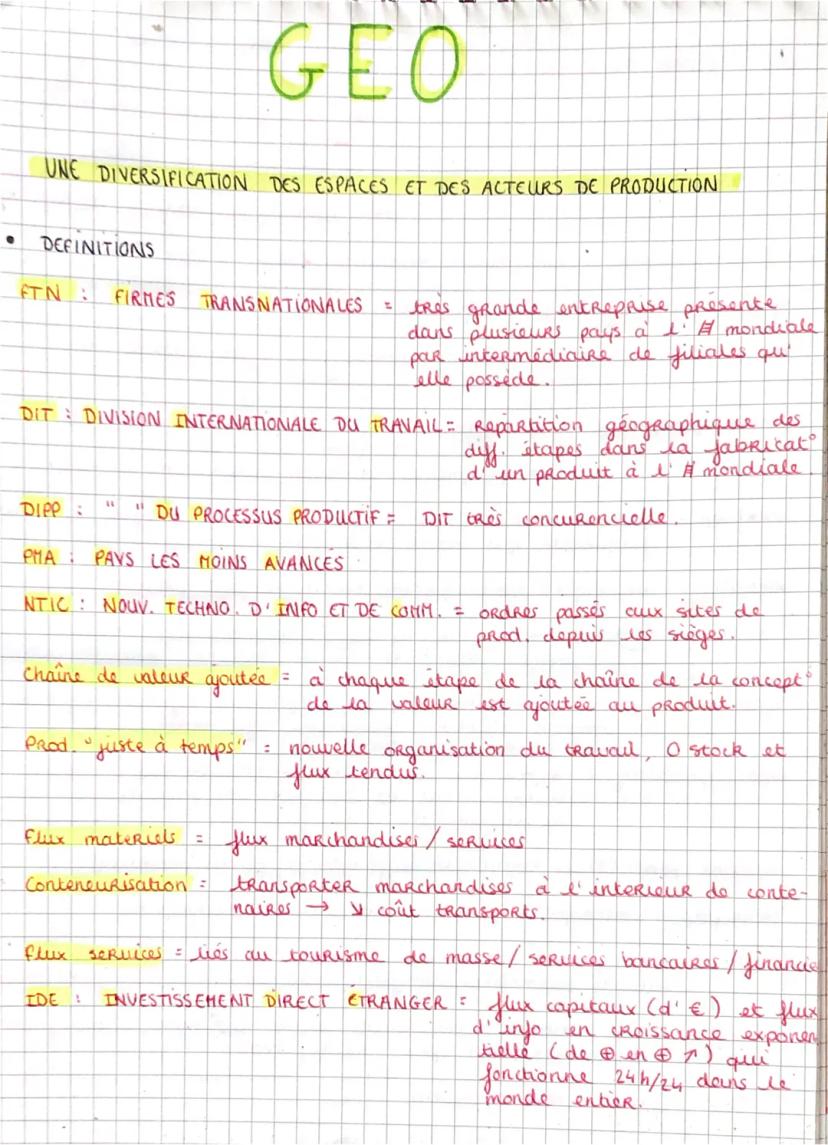 GEO
UNE DIVERSIFICATION DES ESPACES ET DES ACTEURS DE PRODUCTION
• DEFINITIONS
FTN : FIRMES TRANSNATIONALES = très grande entreprise présente
dans plusieurs pays à l'# mondiale
par intermédiaire de filiales qu'
elle possède.
DIT : DIVISION INTERNATIONALE DU TRAVAIL = Répartition géographique des
diff. étapes dans la fabricat°
d'un produit à l'# mondiale
DIPP : " " DU PROCESSUS PRODUCTIF = DIT très concurencielle.
PMA : PAYS LES MOINS AVANCÉS
NTIC : NOUV. TECHNO. D'INFO ET DE COMM. = ordres passés aux sites de
prod. depuis les sièges.
Chaîne de valeur ajoutée = à chaque étape de la chaîne de la concept°
de la valeur est ajoutée au produit.
Prod. "juste à temps" = nouvelle organisation du travail, 0 stock et
flux tendus.
Flux materiels = flux marchandises / services
Conteneurisation = transporter marchandises à l'interieur de conte-
naires → ↘ coût transports.
Flux services = liés au tourisme de masse / services bancaires / financie
IDE : INVESTISSEMENT DIRECT ÉTRANGER = flux capitaux (d'€) et flux
d'info en croissance exponen
tielle (de ⊕ en ⊕ ↗) qui
fonctionne 24h/24 dans le
monde entier.